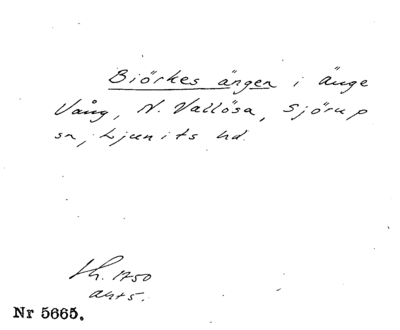 Biörkes ängen i Änge
Vång, N. Vallösa, Sjörup
sn, Ljunits hd.
1750
Nr 5665.